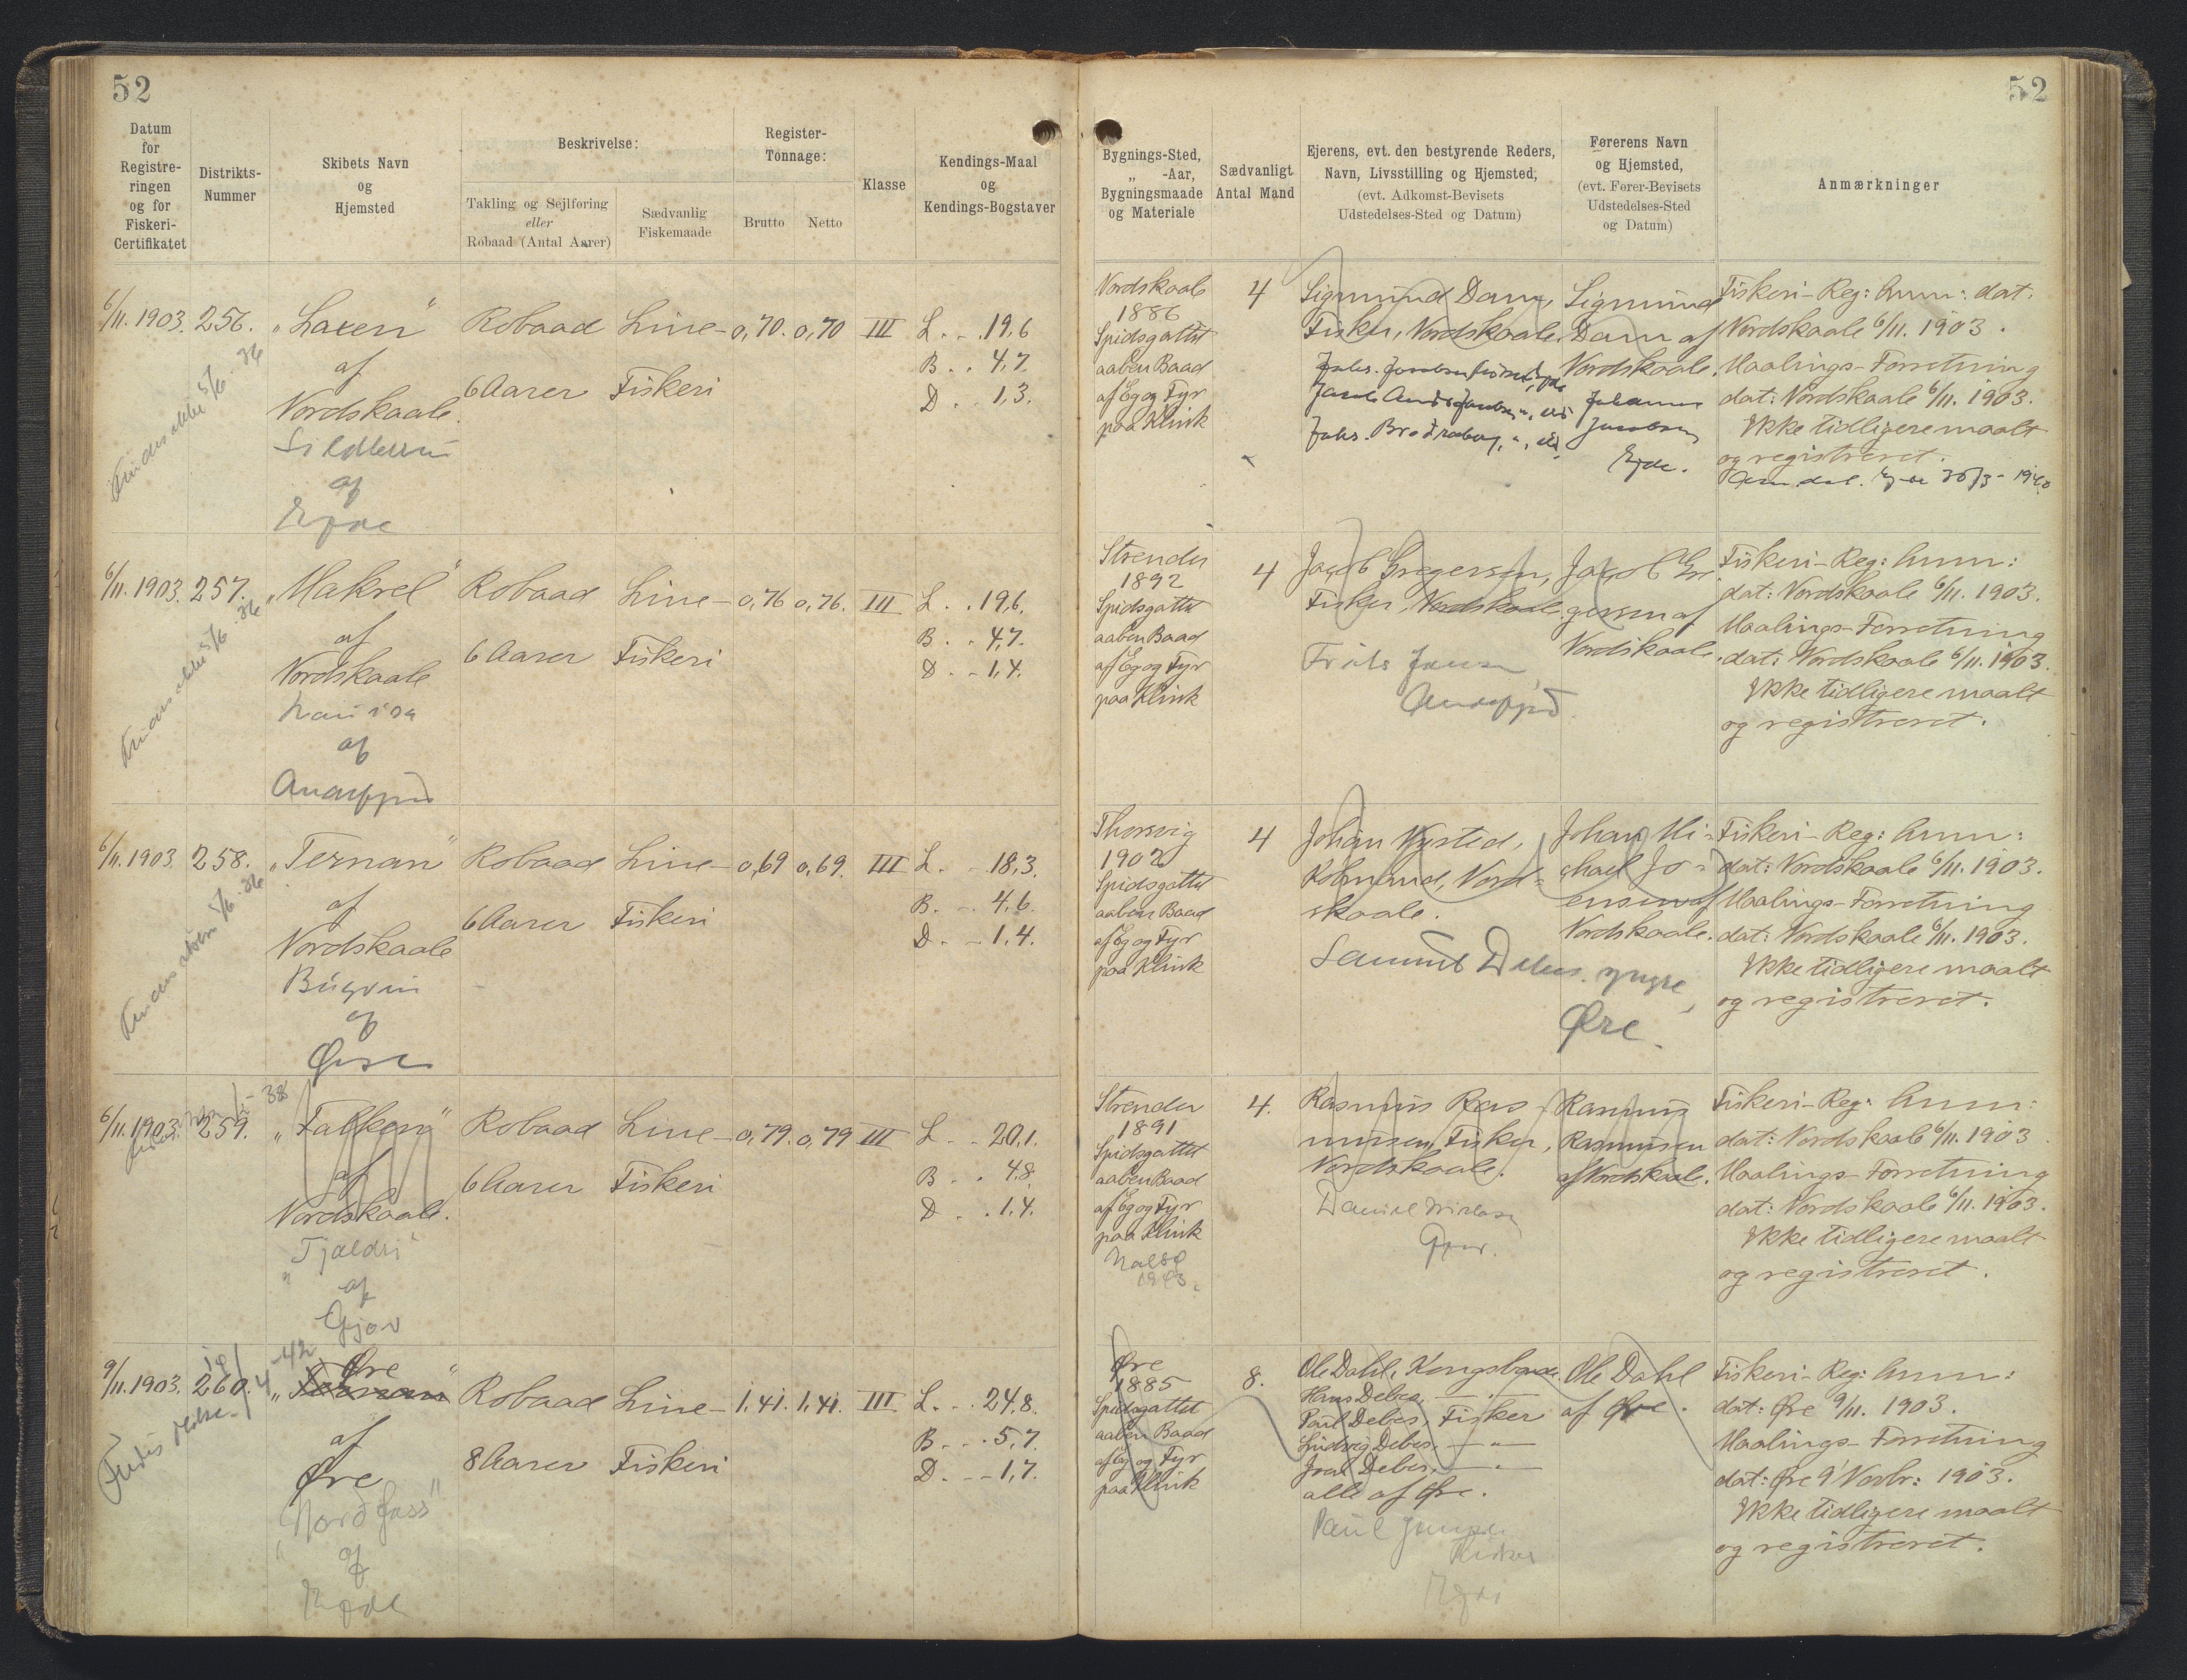 52
52
Datum
for
Registre-
ringen
og for
Fiskeri-
Certifikatet
Distrikts-
Nummer
Skibets Navn
og
Hjemsted
Beskrivelse:
Takling og Sejlføring
eller
Robaad (Antal Aarer)
Sædvanlig
Fiskemaade
Register-
Tonnage:
Brutto
Netto
Klasse
Kendings-Maal
og
Kendings-Bogstaver
Bygnings-Sted,
„ -Aar,
Bygningsmaade
og Materiale
Sædvanligt
Antal Mand
Ejerens, evt. den bestyrende Reders,
Navn, Livsstilling og Hjemsted,
(evt. Adkomst-Bevisets
Udstedelses-Sted og Datum)
Førerens Navn
og Hjemsted,
(evt. Fører-Bevisets
Udstedelses-Sted
og Datum)
Anmærkninger
6/11. 1903. 256.
„Laxen“
af
Nordskaale.
af
Robaad
6 Aarer
Line-
Fiskeri
0,70. 0,70 III
L. - . 19,6
B. . 4,7.
D. . 1,3.
Nordskaale
1886
Spidsgattet
aaben Baad
af Eg og Fyr
paa Klink
4
Sigmund Dam,
Fisker, Nordskaale.
Sigmund
Dam af
Nordskaale.
Johannes
Jacobsen
Ejde.
Fiskeri-Reg: Anm: dat.
Nordskaale 6/11. 1903.
Maalings-Forretning
dat: Nordskaale 6/11. 1903.
Ikke tidligere maalt
og registreret.
6/11. 1903. 257.
„Makrel“
af
Nordskaale
af
Andefjord
Robaad
6 Aarer
Line-
Fiskeri
0,76 0,76. III
L. . 19,6.
B. . 4,7.
D. - 1,4.
Strender
1892
Spidsgattet
aaben Baad
af Eg og Fyr
paa Klink
4
Jacob Gregersen,
Fisker, Nordskaale.
Jacob Gre
gersen af
Nordskaale.
Fiskeri-Reg: Anm:
dat: Nordskaale 6/11. 1903.
Maalings-Forretning
dat: Nordskaale 6/11. 1903.
Ikke tidligere maalt
og registreret.
6/11. 1903. 258.
„Ternan“
af
Nordskaale
af
Robaad
6 Aarer
Line-
Fiskeri
0,69 0,69. III
L. - 18,3.
B. - 4,6.
D. - 1,4.
Thorsvig
1902
Spidsgattet
aaben Baad
af Eg og Fyr
paa Klink
4
Johan Nysted,
Købmand, Nord-
skaale.
Øre.
Johan Mi-
chael Jo-
ensen af
Nordskaale.
Fiskeri-Reg: Anm:
dat: Nordskaale 6/11. 1903.
Maalings-Forretning
dat: Nordskaale 6/11. 1903.
Ikke tidligere maalt
og registreret.
6/11. 1903. 259.
„Falken“
af
Nordskaale.
„Tjaldri“
af
Gjov
Robaad
6 Aarer
Line-
Fiskeri
0,79. 0,79 III
L. - . 20,1.
B. . 4,8.
D. . . 1,4.
Strender
1891
Spidsgattet
aaben Baad
af Eg og Fyr
paa Klink
4.
Rasmus Ras-
mussen, Fisker,
Nordskaale.
Rasmus
Rasmussen
af Nordskaale.
Fiskeri-Reg: Anm:
dat: Nordskaale 6/11. 1903
Maalings-Forretning
dat: Nordskaale 6/11. 1903.
Ikke tidligere maalt
og registreret.
9/11. 1903. 260.
Øre
af
Øre
„Nordfoss“
af
Ejde
Robaad
8 Aarer
Line-
Fiskeri
1,41. 1,41. III
L. . . 24,8.
B. . . 5,7.
D. - - 1,7.
Øre
1885
Spidsgattet
aaben Baad
af Eg og Fyr
paa Klink
8.
Ole Dahl, Kongsbonde.
Hans Debes, —„—
Paul Debes, Fisker
Ludvig Debes, —„—
Joen Debes, —„—
alle af Øre.
Ole Dahl
af Øre.
Fiskeri-Reg: Anm:
dat: Øre 9/11. 1903.
Maalings-Forretning
dat: Øre 9' Novbr: 1903.
Ikke tidligere maalt
og registreret.